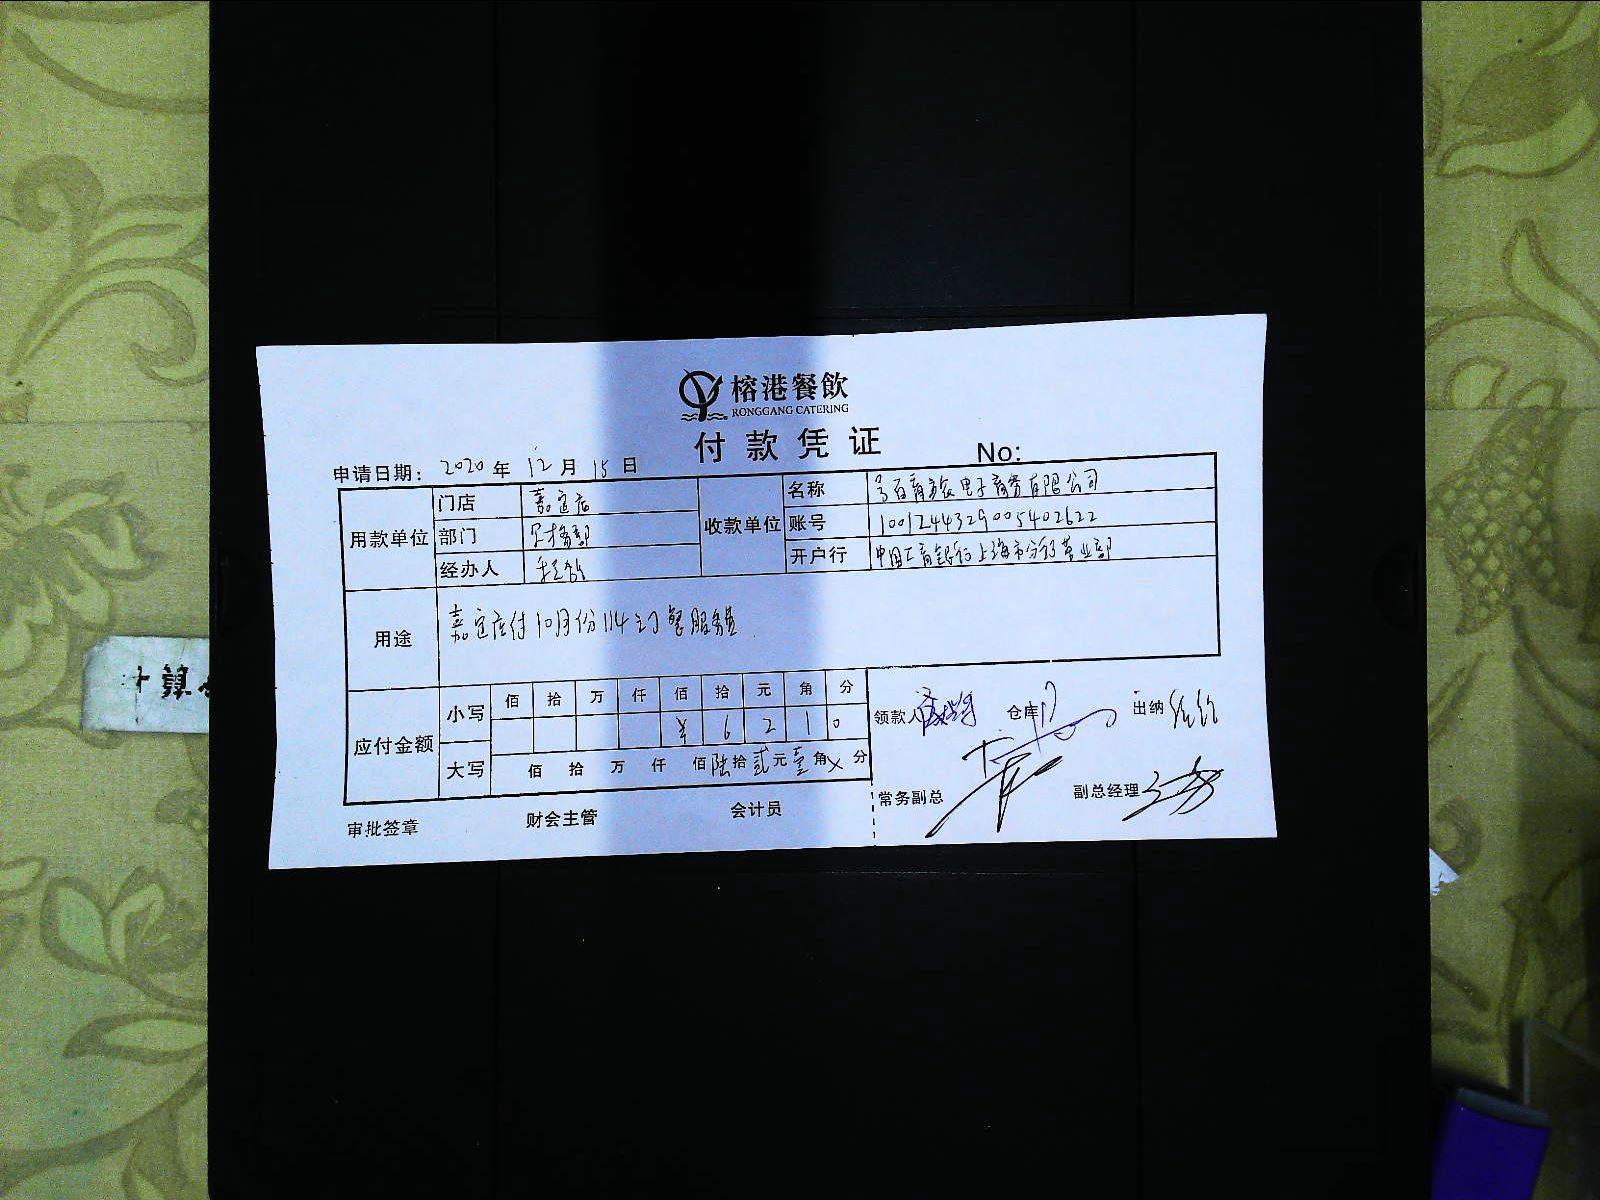 榕港餐飲
RONGGANG CATERING
付款凭证
No:
申请日期: 2020 年 12 月 15 日
用款单位 门店 嘉定店 收款单位 名称 号百商旅电子商务有限公司
部门 账号 1001244329005402622
经办人 开户行 中国工商银行上海市分行营业部
用途 嘉定店付10月份114订餐服务费
应付金额 小写 佰 拾 万 仟 佰 拾 元 角 分
¥ 6 2 1 0
大写 佰 拾 万 仟 佰 陆 拾 贰 元 壹 角 × 分
领款人 仓库 出纳
常务副总 副总经理
审批签章 财会主管 会计员